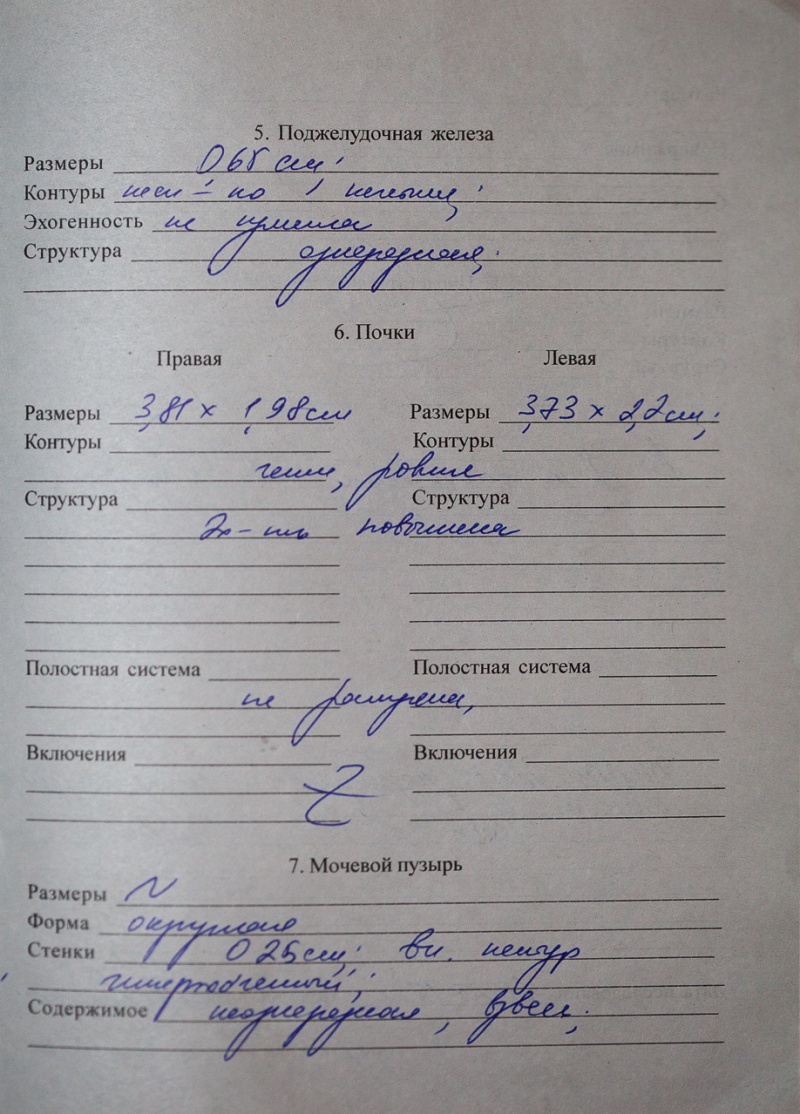 5. Поджелудочная железа
Размеры 0,65 см;
Контуры
Эхогенность не
Структура однородная.
6. Почки
Правая Левая
Размеры 3,81 х 1,98 см Размеры 3,73 х 2,2 см;
Контуры Контуры
четкие, ровные
Структура Структура
Эх-ть повышена
Полостная система Полостная система
не расширена,
Включения Включения
7. Мочевой пузырь
Размеры N
Форма округлая
Стенки 0,25 см; вн. контур
гиперэхогенный;
Содержимое неоднородное, взвесь.